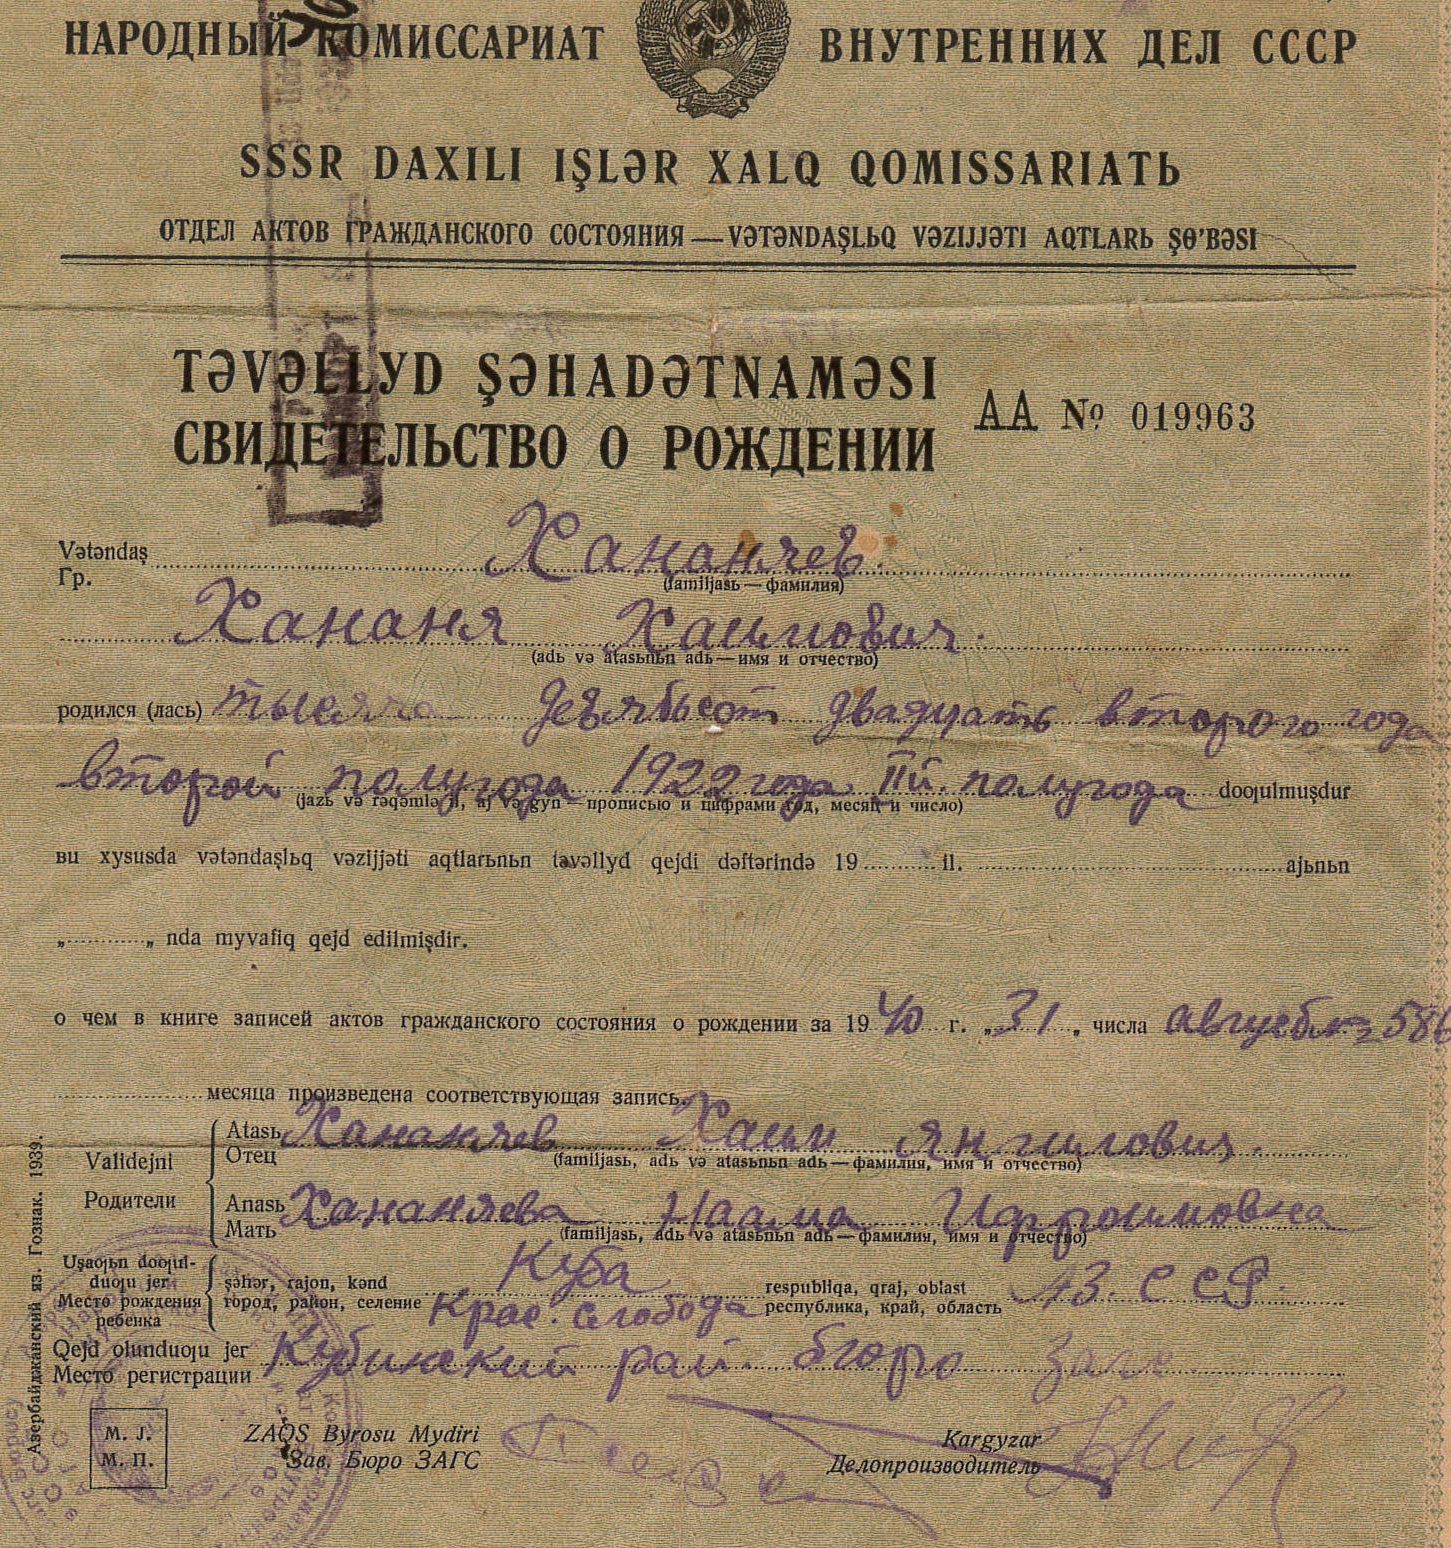 НАРОДНЫЙ КОМИССАРИАТ ВНУТРЕННИХ ДЕЛ СССР
SSSR DAXILI IŞLƏR XALQ QOMISSARIATЬ
ОТДЕЛ АКТОВ ГРАЖДАНСКОГО СОСТОЯНИЯ—VƏTƏNDAŞLЬQ VƏZIJJƏTI AQTLARЬ ŞɵʼBƏSI
TƏVƏLLYD ŞƏHADƏTNAMƏSI
СВИДЕТЕЛЬСТВО О РОЖДЕНИИ
АА № 019963
Vətəndaş
Гр. Хананяев
(familjasь—фамилия)
Хананя Хаимович.
(adь və atasьnьn adь—имя и отчество)
родился (лась) тысяча девятьсот двадцать второго года
второй полугода 1922 года II й. полугода doƣulmuşdur
(jazь və rəqəmlə il, aj və gyn прописью и цифрами год, месяц и число)
вu xysusda vətəndaşlьq vəzijjəti aqtlarьnьn təvəllyd qejdi dəftərində 19 il. ajьnьn
„ „ nda myvafiq qejd edilmişdir.
о чем в книге записей актов гражданского состояния о рождении за 1940 г. „31„ числа августа
месяца произведена соответствующая запись.
Validejni
Родители
Atasь
Отец Хананяев Хаим Янгилович.
(familjasь, adь və atasьnьn adь—фамилия, имя и отчество)
Anasь
Мать Хананяева Наама Ифраимовна
(familjasь, adь və atasьnьn adь—фамилия, имя и отчество)
Uşaƣьn doƣul-
duƣu jer
Место рождения
ребенка
şəhər, rajon, kənd
город, район, селение Куба
Крас. слобода
respubliqa, qraj, oblast
республика, край, область АЗ. ССР.
Qejd olunduƣu jer
Место регистрации Кубинский рай. бюро Загс
M. J.
М. П.
ZAQS Byrosu Mydiri
Зав. Бюро ЗАГС
Kargyzar
Делопроизводитель
Азербайджанский яз. Гознак. 1939.